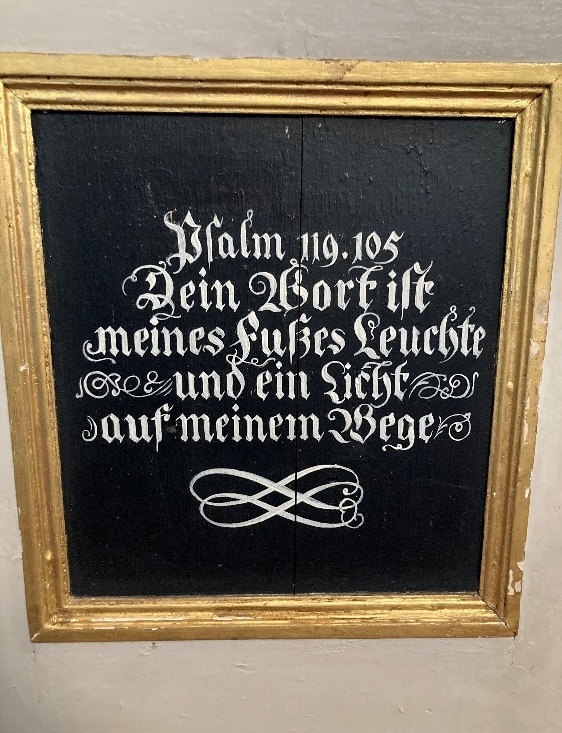 Psalm 119.105
Dein Wort ist
meines Fußes Leuchte
und ein Licht
auf meinem Wege